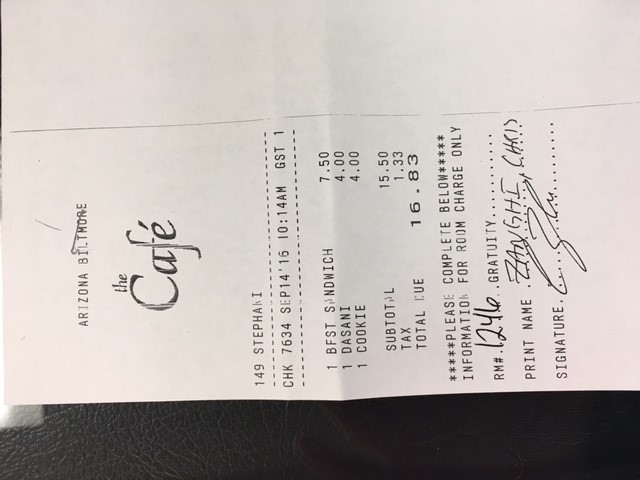 ARIZONA BILTMORE
the
Café
149 STEPHANI
CHK 7634 SEP14'16 10:14AM GST 1
1 BFST SANDWICH 7.50
1 DASANI 4.00
1 COOKIE 4.00
SUBTOTAL 15.50
TAX 1.33
TOTAL DUE 16.83
*****PLEASE COMPLETE BELOW*****
INFORMATION FOR ROOM CHARGE ONLY
RM#.1246..GRATUITY..........
PRINT NAME .ZANGHI, CHRIS
SIGNATURE.